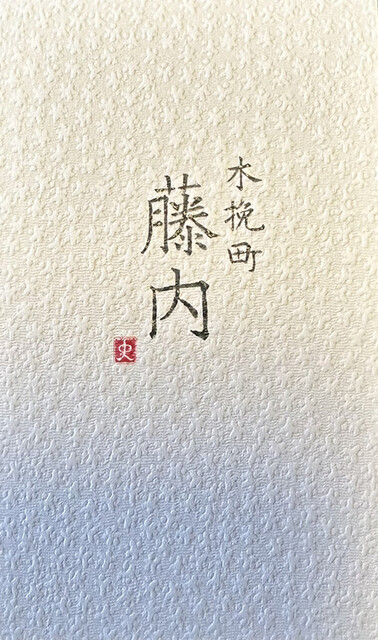 木挽町
藤内
史